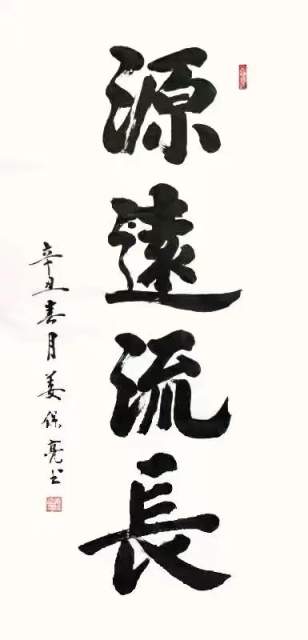 源遠流長
辛丑春月姜保亮书